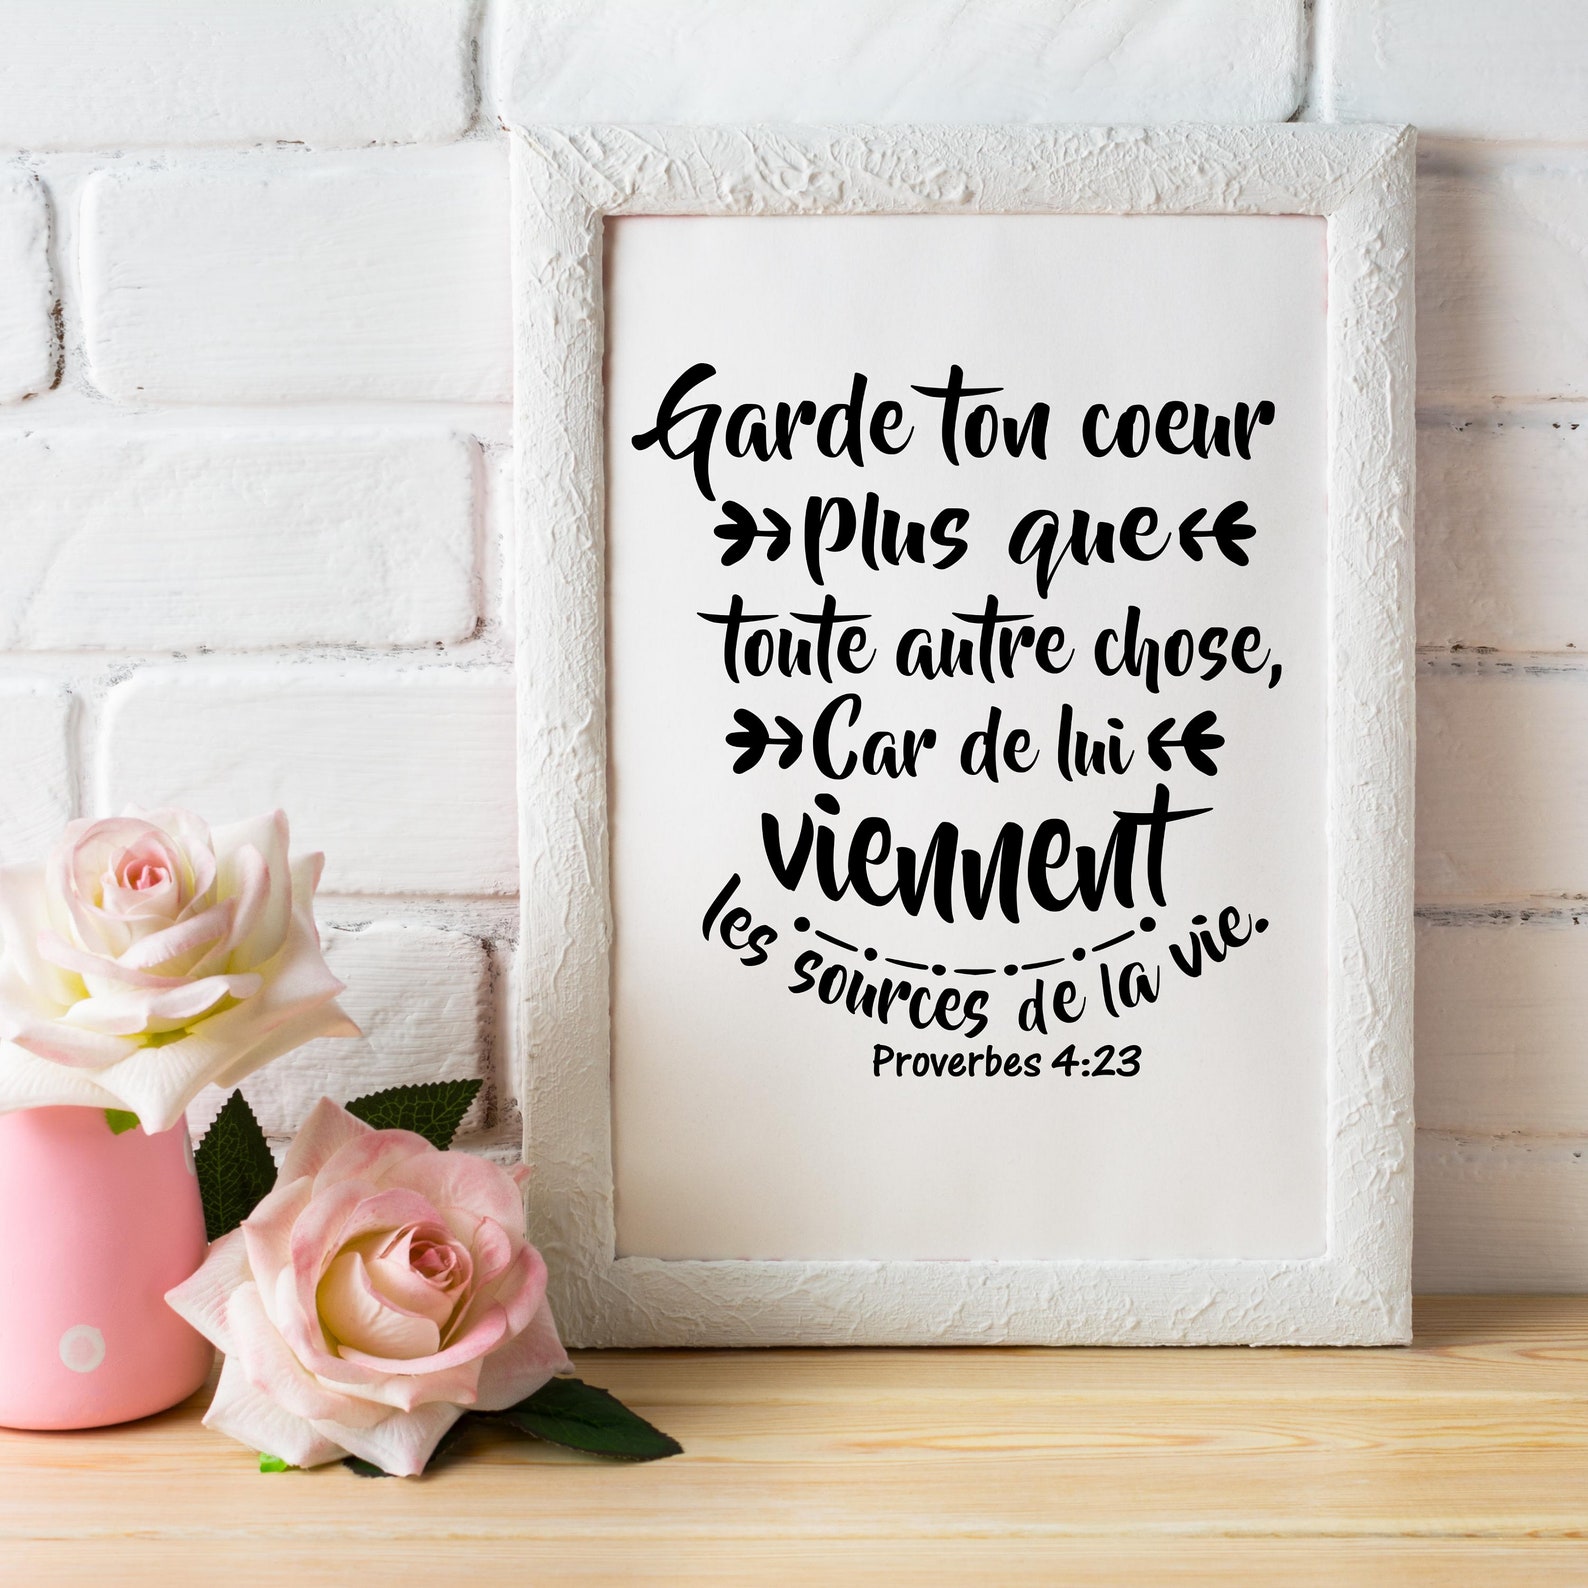 Garde ton coeur
plus que
toute autre chose,
Car de lui
viennent
les sources de la vie.
Proverbes 4:23